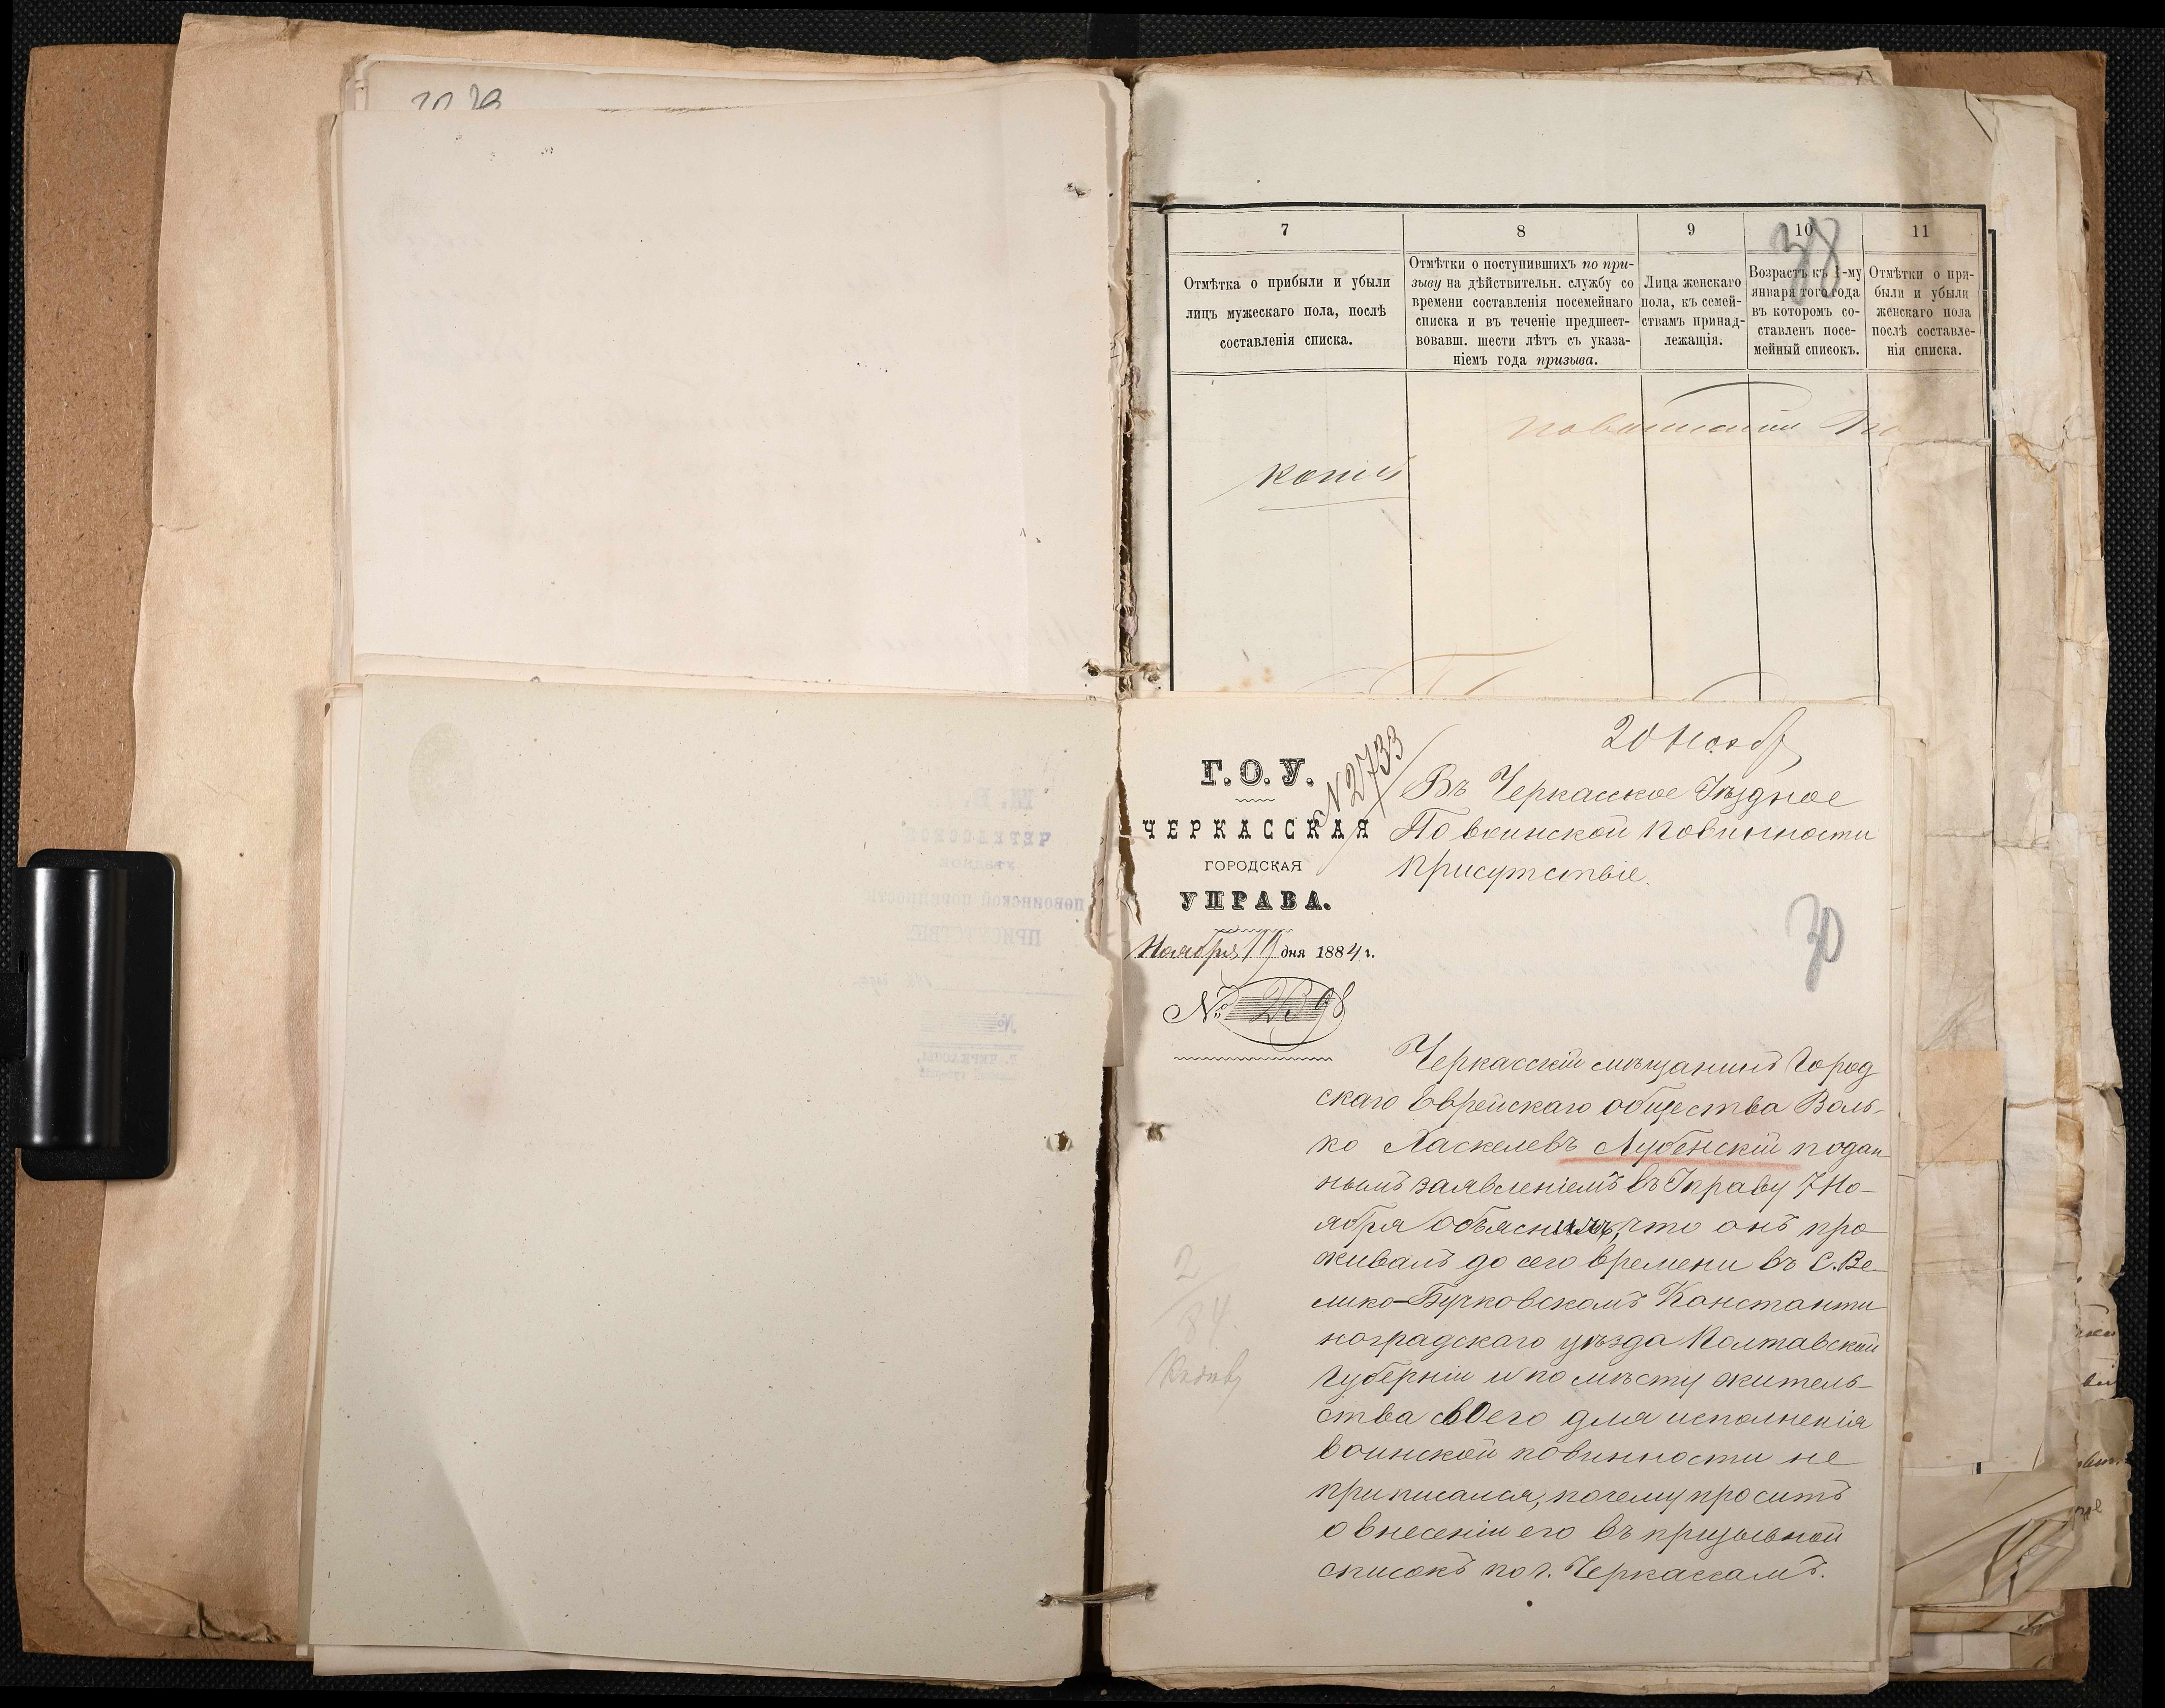 38
7
8
9
10
11
Отмѣтка о прибыли и убыли
лицъ мужескаго пола, послѣ
составленія списка.
Отмѣтки о поступившихъ по при-
зыву на дѣйствительн. службу со
времени составленія посемейнаго
списка и въ теченіе предшест-
вовавш. шести лѣтъ съ указа-
ніемъ года призыва.
Лица женскаго
пола, къ семей-
ствамъ принад-
лежащія.
Возрастъ къ 1-му
января того года
въ которомъ со-
ставленъ посе-
мейный списокъ.
Отмѣтки о при-
были и убыли
женскаго пола
послѣ составле-
нія списка.
20 Нояб
Г. О. У.
N 2733
ЧЕРКАССКАЯ
ГОРОДСКАЯ
УПРАВА.
Ноября 19 дня 1884 г.
№ 2398
Въ Черкасское Уѣздное
По воинской повинности
присутствіе.
30
Черкасскій мѣщанинъ Город
скаго Еврейскаго общества Воль-
ко Хаскелевъ Лубенскій подан
нымъ заявленіемъ въ Управу 7 Но-
ября объяснилъ, что онъ про
живалъ до сего времени въ С. Ве-
лико-Бучковскомъ Константи
ноградскаго уѣзда Полтавской
Губерніи и по мѣсту житель-
ства своего для исполненія
воинской повинности не
приписался, почему проситъ
о внесеніи его въ призывной
списокъ по г. Черкассамъ.
2
84